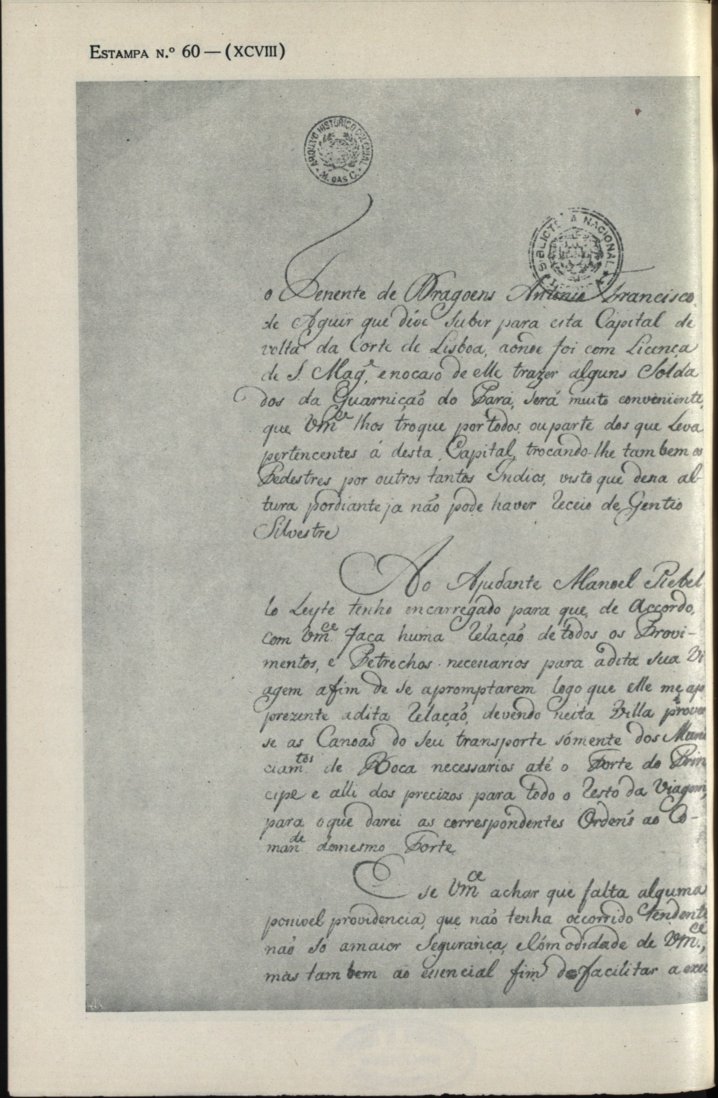 ESTAMPA N.º 60 — (XCVIII)
ARQUIVO HISTORICO COLONIAL
M. DAS C.
BIBLIOTECA NACIONAL
O Tenente de Dragoens Antonio Francisco
de Aguir que déve subir para esta Capital de
volta da Corte de Lisboa, aonde foi com Licença
de S. Magᵉ, e no cazo de elle trazer alguns Solda
dos da Guarnição do Pará, será muito conveniente,
que Vmᶜᵉ lhos troque por todos, ou parte dos que leva
pertencentes á desta Capital, trocando-lhe tambem os
Pedestres por outros tantos Indios, visto que desa al-
tura pordiante ja não pode haver receio de Gentio
Silvestre
Ao Ajudante Manoel Rebel
lo Leyte tenho encarregado para que, de Accordo,
com Vmᶜᵉ faça huma relação de todos os Provi-
mentos, e Petrechos necessarios para adita sua Vi
agem afim de se apromptarem logo que elle me ap
prezente adita relação, devendo nesta Villa prover
se as Canoas do seu transporte sómente dos Mani
ciamᵗᵒˢ de Boca necessarios até o Forte do Prin
cipe e alli dos precizos para todo o resto da Viagem,
para oque darei as correspondentes Ordens ao Co-
manᵈᵉ domesmo Forte
E se Vmᶜᵉ achar que falta alguma
possivel providencia, que não tenha occorrido tendente
não só amaior segurança, e Comodidade de Vmᶜᵉ,
mas tambem ao essencial fim de facilitar a exe